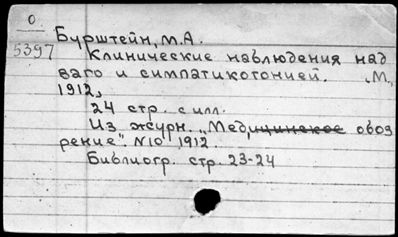 0
5397
Бурштейн, М.А.
Клинические наблюдения над
ваго и симпатикотонией. М.,
1912,
24 стр. с илл.
Из журн. "Медицинское обоз
рение". N10 1912.
Библиогр. стр. 23-24